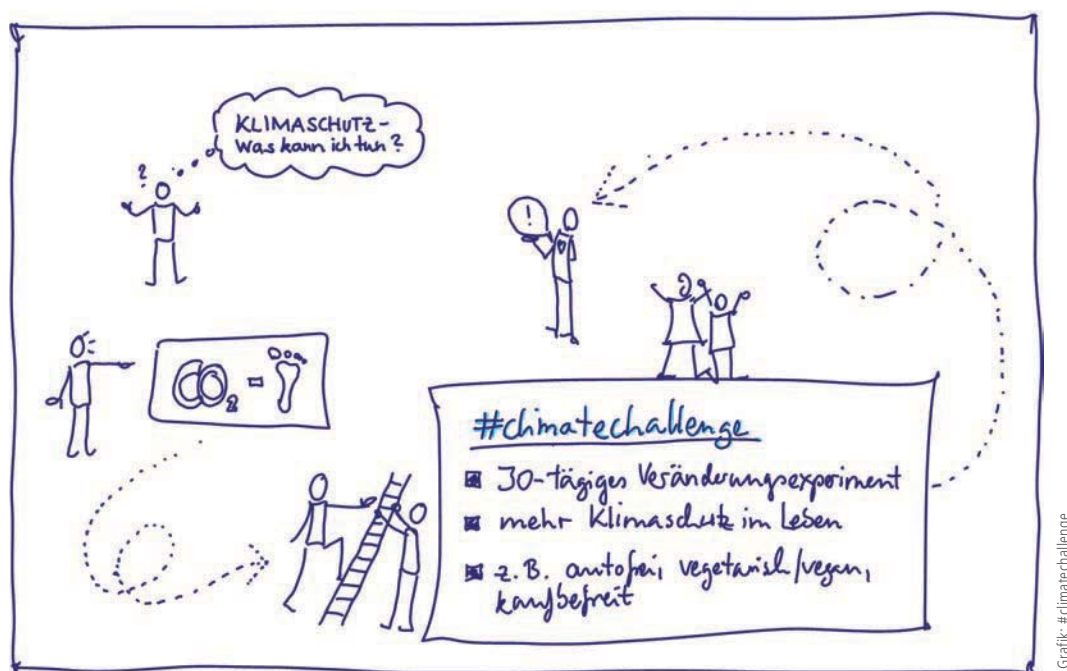 KLIMASCHUTZ-
Was kann ich tun?
?
!
CO2-
#climatechallenge
30-tägiges Veränderungsexperiment
mehr Klimaschutz im Leben
z.B. autofrei, vegetarisch/vegan,
kaufbefreit
Grafik: #climatechallenge